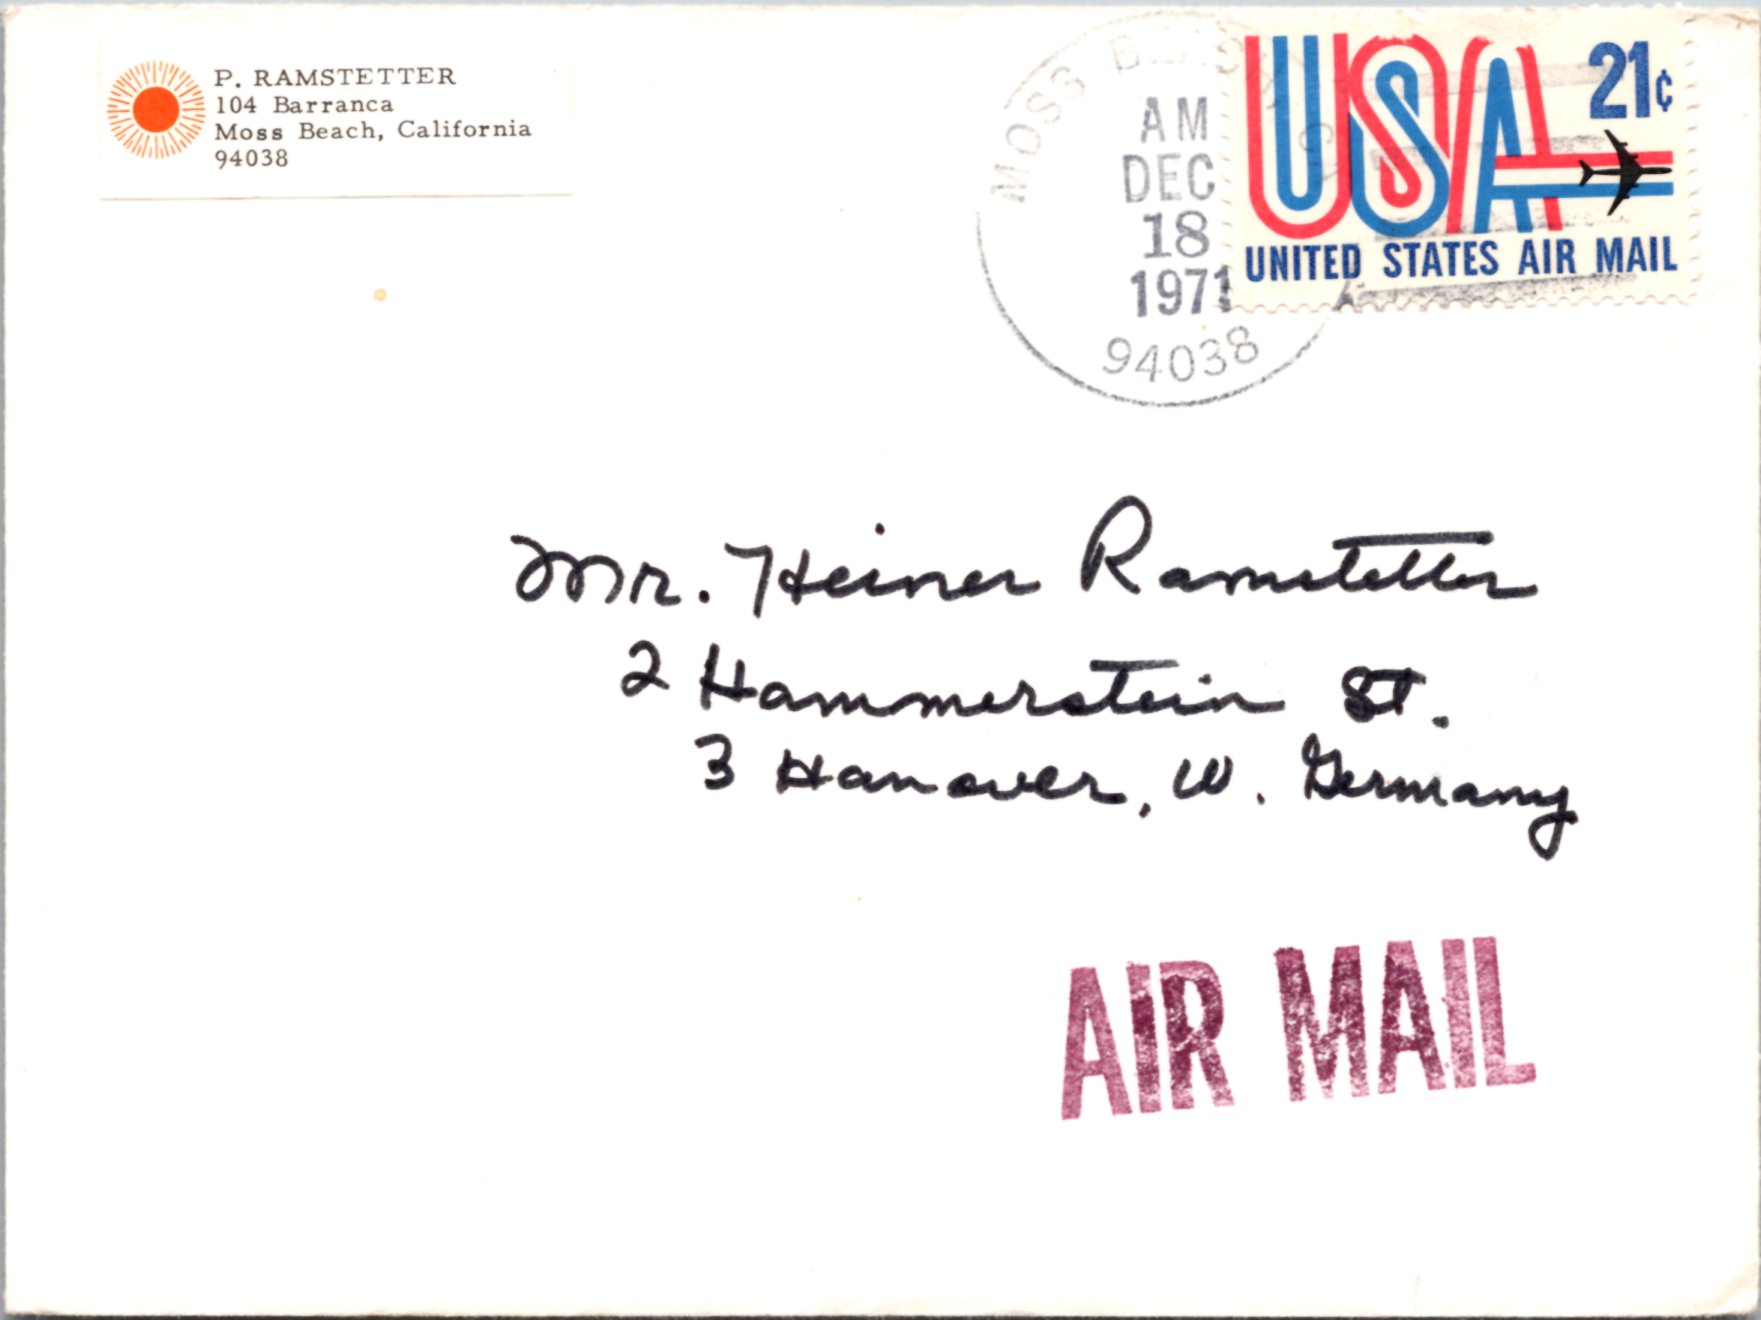 P. RAMSTETTER
104 Barranca
Moss Beach, California
94038
MOSS BEACH, CA
AM
DEC
18
1971
94038
USA 21¢
UNITED STATES AIR MAIL
Mr. Heiner Ramstetter
2 Hammerstein St.
3 Hanover, W. Germany
AIR MAIL